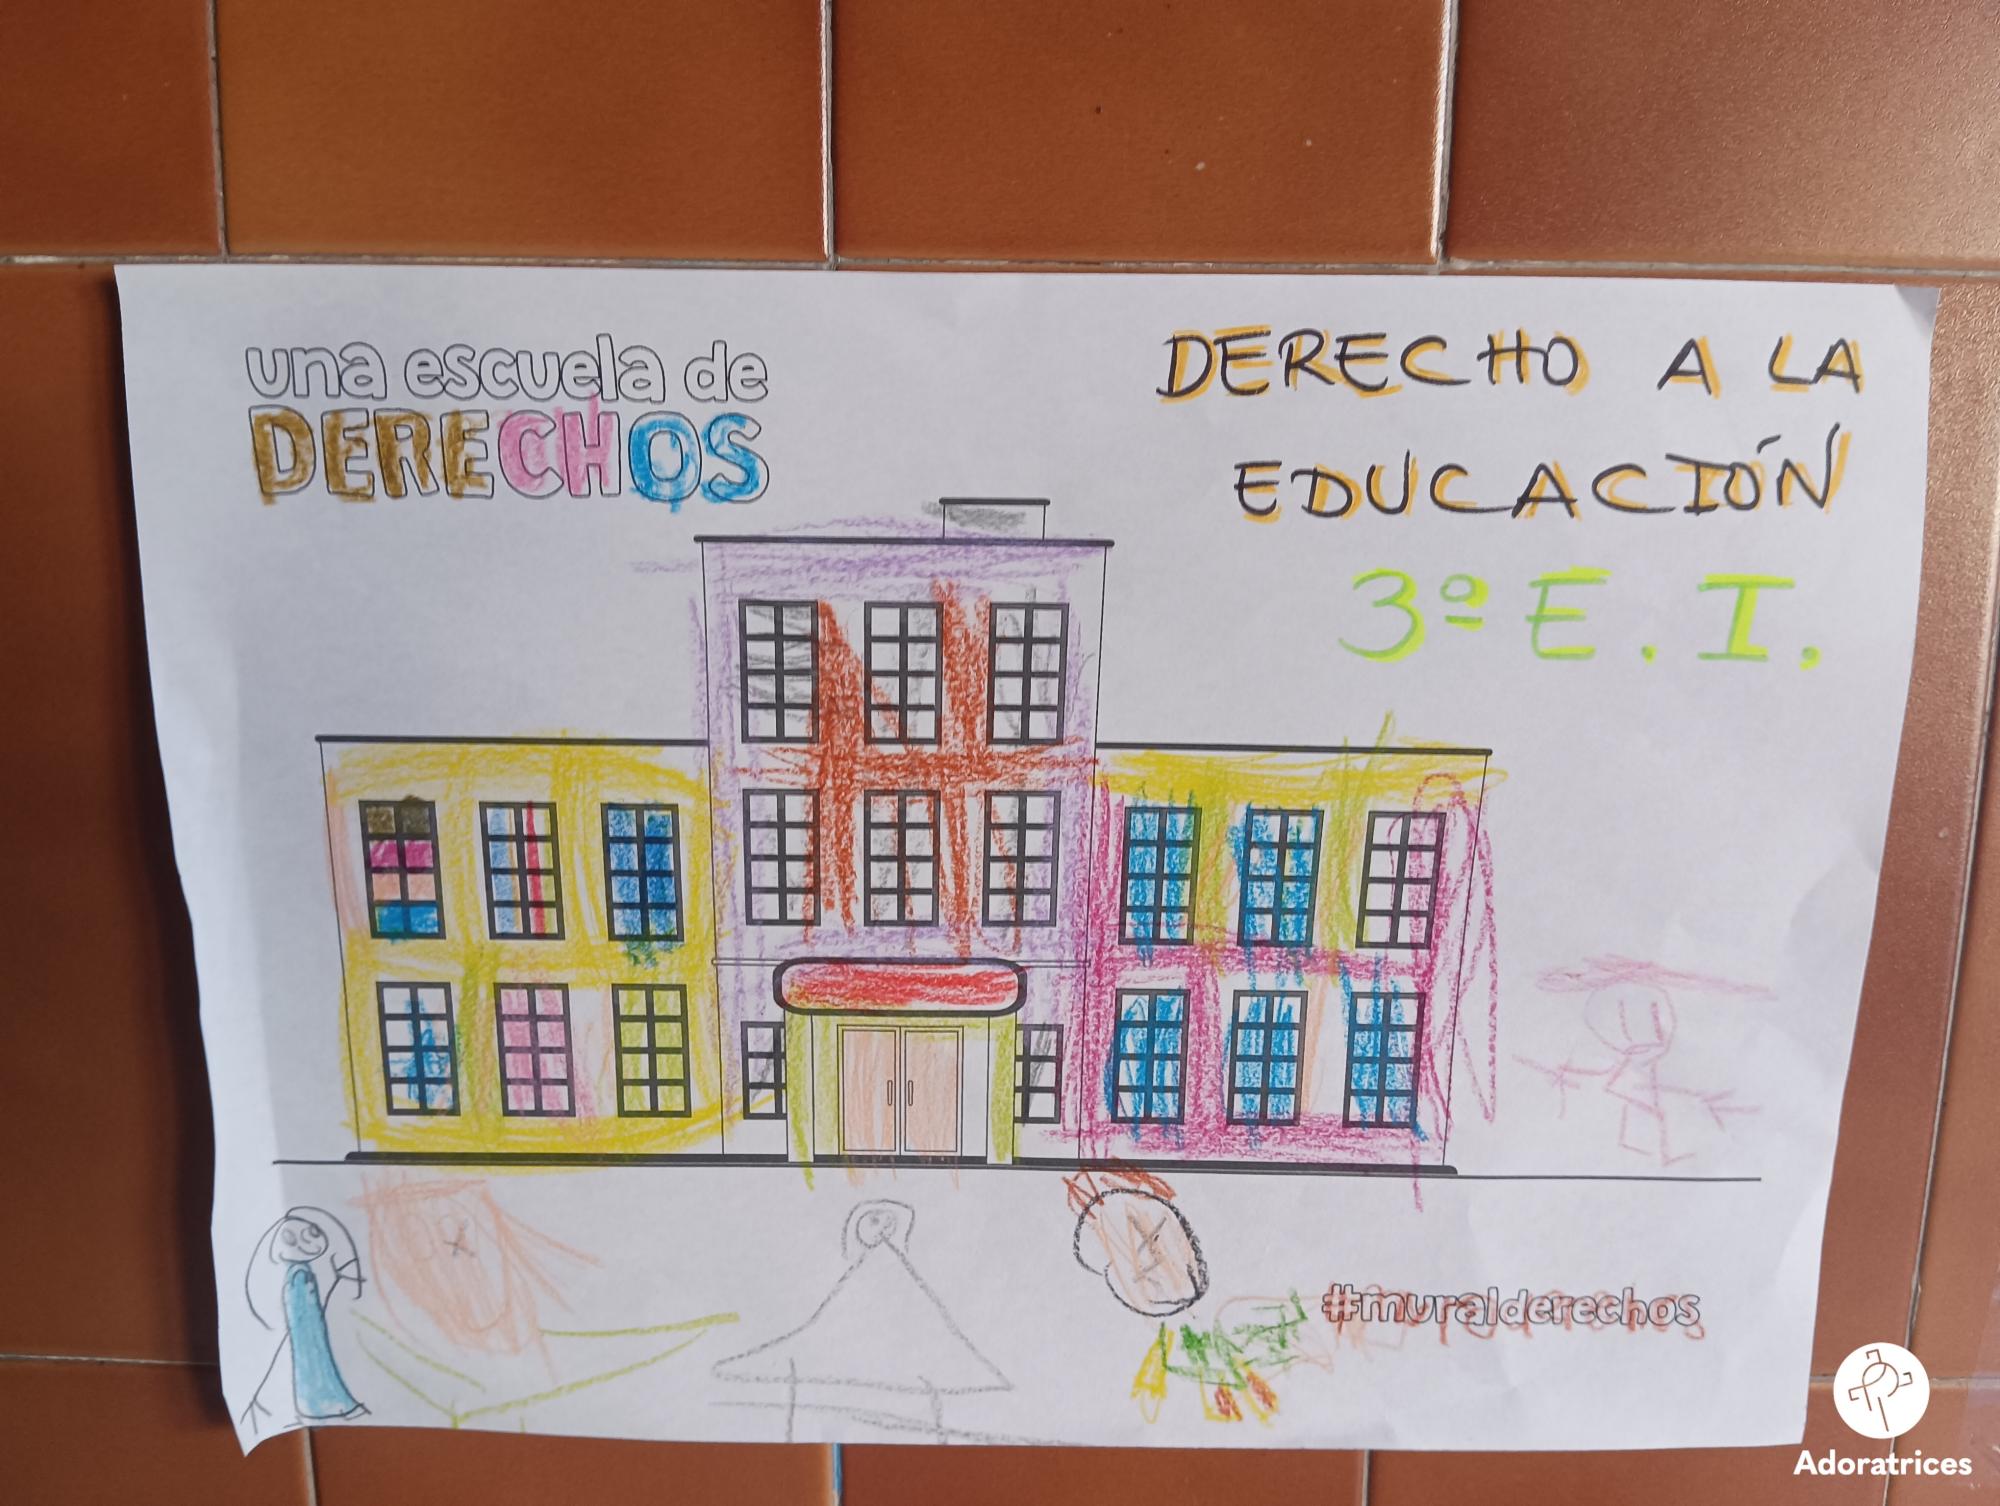 una escuela de
DERECHOS
DERECHO A LA
EDUCACIÓN
3º E. I.
#muralderechos
Adoratrices